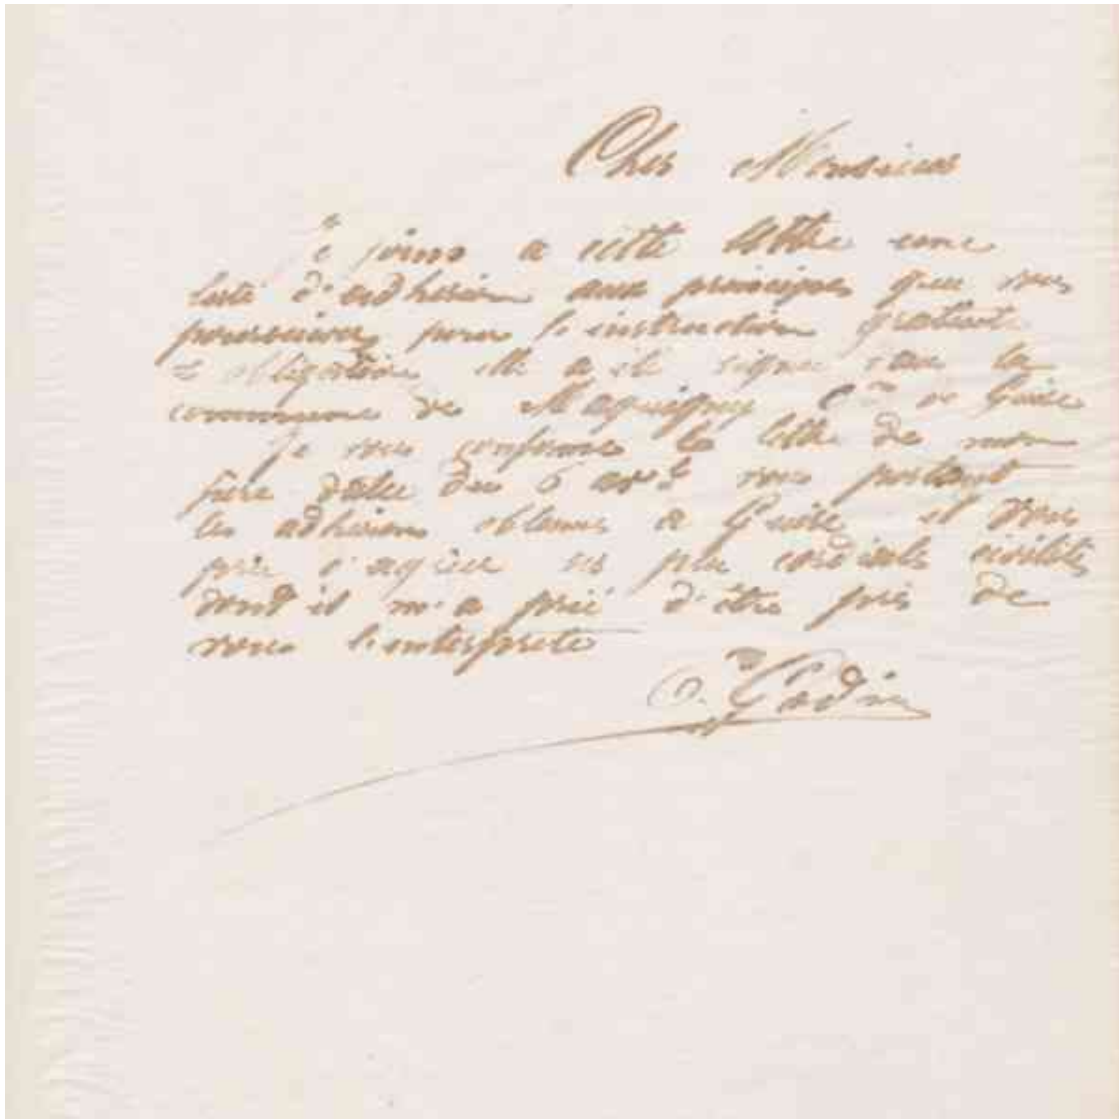 Cher Monsieur
Je joins a cette lettre une
liste d'adhesion aux principes que vous
poursuivez pour l'instruction gratuite
et obligatoire elle a été signée dans la
commune de Maquigny Con de Guise
Je vous confirme la lettre de mon
père datée du 6 avril vous portant
les adhesions obtenues a Guise et vous
prie d'agréer ses plus cordiales civilités
dont il m'a prié d'être près de
vous l'interprete
Godin